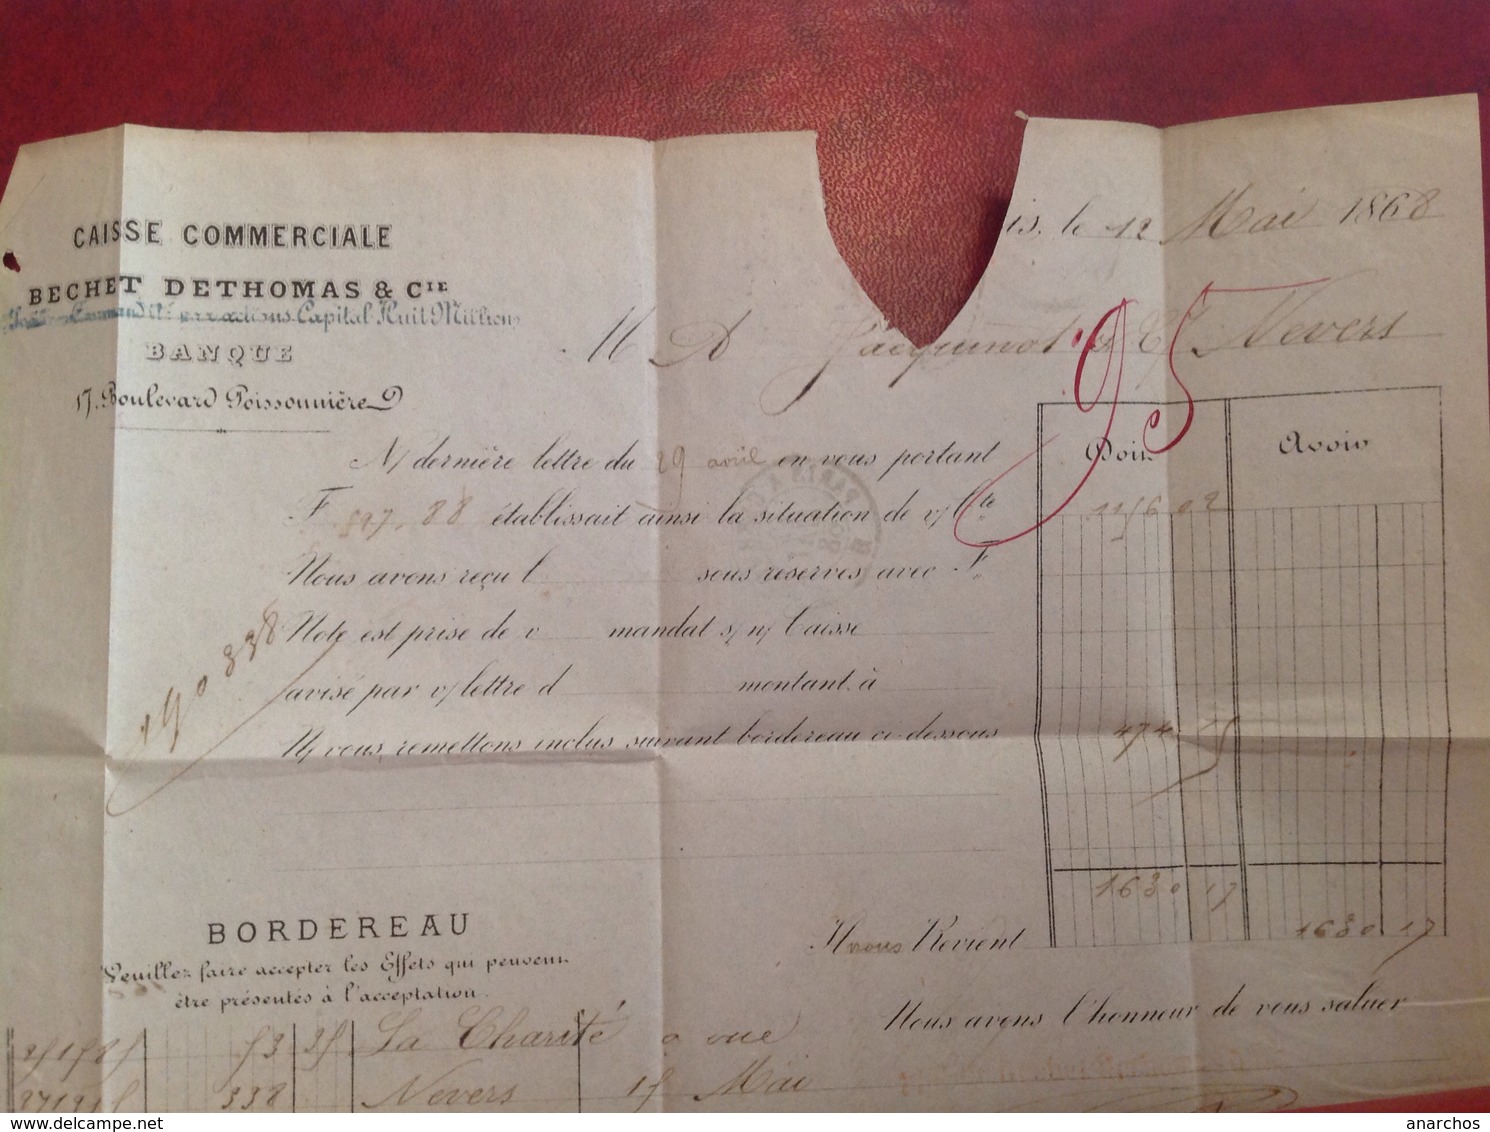 is, le 12 Mai 1868
CAISSE COMMERCIALE
BECHET DETHOMAS & CIE
actions Capital Huit Millions
BANQUE
17. Boulevard Poissonnière
M A Jacquinot & Cie Nevers
95
Doit Avoir
N/ dernière lettre du 29 avril en vous portant
F 597. 88 établissait ainsi la situation de v/ Cte 1156 02
Nous avons reçu l sous réserves avec F.
Note est prise de v mandat s/ n/ Caisse
avisé par v/ lettre d montant à
N/ vous remettons inclus suivant bordereau ci-dessous 474 15
190 338
1630 17
Il vous Revient 1630 17
BORDEREAU
Veuillez faire accepter les Effets qui peuvent
être présentés à l'acceptation.
Nous avons l'honneur de vous saluer
53 25 La Charité a vue
338 Nevers 15 Mai
anarchos